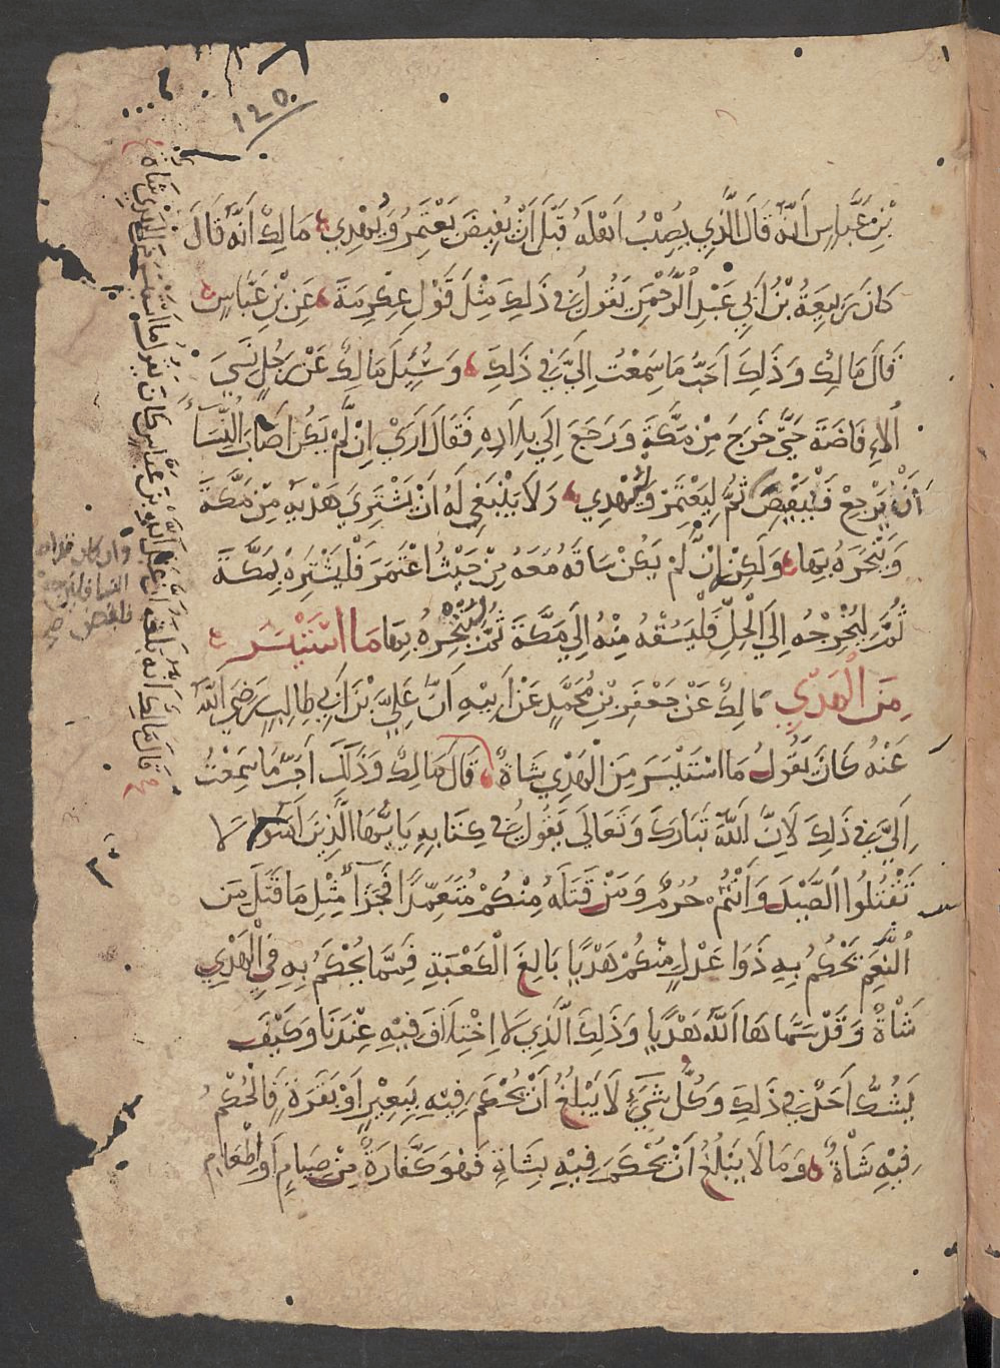 ١٤٥
بْنِ عَبَّاسٍ أَنَّهُ قَالَ الَّذِي يُصِيْبُ اَهْلَهُ قَبْلَ اَنْ يُفِيضَ يَعْتَمِرُ وَيُهْدِي مَالِكٌ اَنَّهُ قَالَ
كَانَ رَبِيعَةُ بْنُ اَبِي عَبْدِ الرَّحْمَنِ يَقُولُ فِي ذَلِكَ مِثْلَ قَوْلِ عِكْرِمَةَ عَنِ بْنِ عَبَّاسٍ
قَالَ مَالِكٌ وَذَلِكَ اَحَبُّ مَا سَمِعْتُ اِلَيَّ فِي ذَلِكَ وَسُئِلَ مَالِكٌ عَنْ رَجُلٍ نَسِيَ
اْلاِفَاضَةَ حَتَّى خَرَجَ مِنْ مَكَّةَ وَرَجَعَ اِلَى بِلَادِهِ فَقَالَ اَرَى اِنْ لَمْ يَكُنْ اَصَابَ النِّسَآءَ
اَنْ يَرْجِعْ فَيُفِيْضَ ثُمَّ لِيَعْتَمِرْ وَلْيُهْدِي وَلَا يَنْبَغِي لَهُ اَنْ يَشْتَرِيَ هَدْيَهُ مِنْ مَكَّةَ
وَيَنْحَرَهُ بِهَا وَلَكِنْ اِنْ لَمْ يَكُنْ سَاقَهُ مَعَهُ مِنْ حَيْثُ اعْتَمَرَ فَلْيَشْتَرِهْ بِمَكَّةَ
ثُمَّ لِيُخْرِجْهُ اِلَى الْحِلِّ فَلْيَسُقْهُ مِنْهُ اِلَى مَكَّةَ ثُمَّ لِيَنْحَرْهُ بِهَا مَا اسْتَيْسَرَ
مِنَ الْهَدْيِ مَالِكٌ عَنْ جَعْفَرِ بْنِ مُحَمَّدٍ عَنْ اَبِيْهِ اَنَّ عَلِيَّ بْنَ اَبِي طَالِبٍ رَضِيَ اللَّهُ
عَنْهُ كَانَ يَقُولُ مَا اسْتَيْسَرَ مِنَ الْهَدْيِ شَاةٌ قَالَ مَالِكٌ وَذَلِكَ اَحَبُّ مَا سَمِعْتُ
اِلَيَّ فِي ذَلِكَ لِاَنَّ اللَّهَ تَبَارَكَ وَتَعَالَى يَقُولُ فِي كِتَابِهِ يَا اَيُّهَا الَّذِينَ آمَنُوا لَا
تَقْتُلُوا الصَّيْدَ وَاَنْتُمْ حُرُمٌ وَمَنْ قَتَلَهُ مِنْكُمْ مُتَعَمِّدًا فَجَزَآءُ مِثْلِ مَا قَتَلَ مِنَ
النَّعَمِ يَحْكُمُ بِهِ ذَوَا عَدْلٍ مِنْكُمْ هَدْيًا بَالِغَ الْكَعْبَةِ فَمِمَّا يُحْكَمُ بِهِ فِي الْهَدْيِ
شَاةٌ وَقَدْ سَمَّاهَا اللَّهُ هَدْيًا وَذَلِكَ الَّذِي لَا اِخْتِلَافَ فِيْهِ عِنْدَنَا وَكَيْفَ
يَشُكُّ اَحَدٌ فِي ذَلِكَ وَكُلُّ شَيْءٍ لَا يَبْلُغُ اَنْ يُحْكَمَ فِيْهِ بِبَعِيْرٍ اَوْ بَقَرَةٍ فَالْحُكْمُ
فِيْهِ شَاةٌ وَمَا لَا يَبْلُغُ اَنْ يُحْكَمَ فِيْهِ بِشَاةٍ فَهُوَ كَفَّارَةٌ مِنْ صِيَامٍ اَوْ اِطْعَامِ
قال مالك انه بلغه ان عبد الله بن عباس كان يقول ما استيسر من الهدي شاة
وان كان
النسا فليرجع